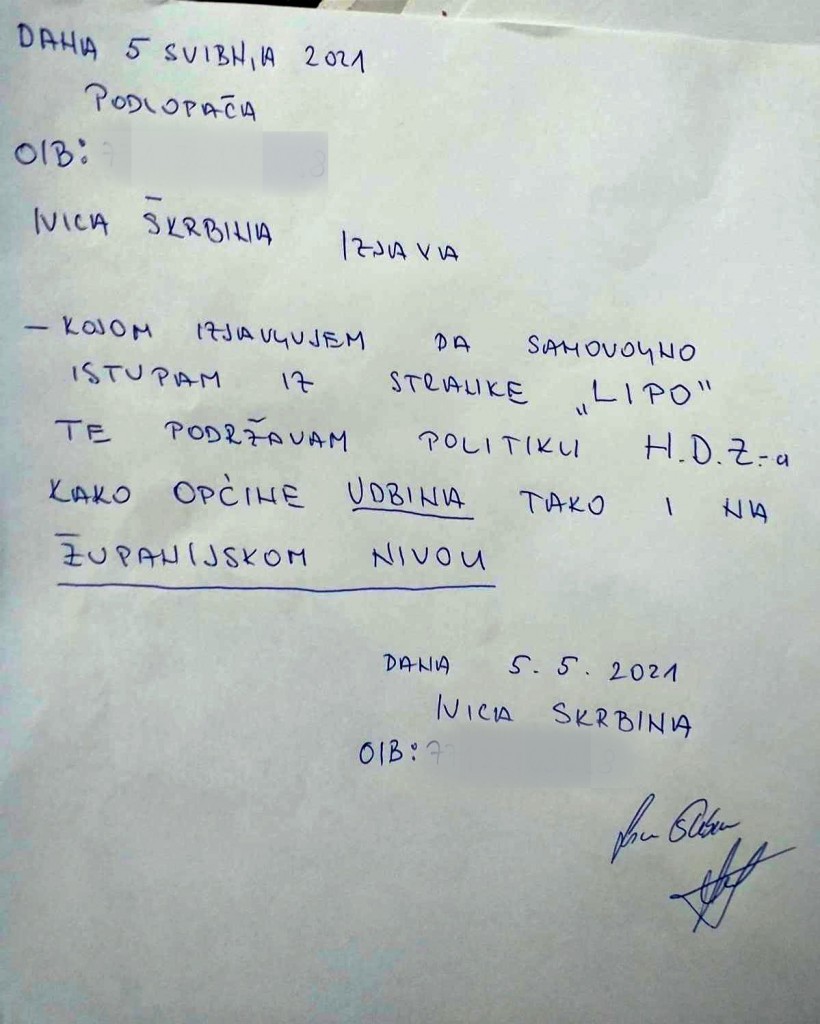 DANA 5 SVIBNJA 2021
PODLOPAČA
OIB:
IVICA ŠKRBINA IZJAVA
- KOJOM IZJAVLJUJEM DA SAMOVOLJNO
ISTUPAM IZ STRANKE „LIPO"
TE PODRŽAVAM POLITIKU H.D.Z.-a
KAKO OPĆINE UDBINA TAKO I NA
ŽUPANIJSKOM NIVOU
DANA 5. 5. 2021
IVICA SKRBINA
OIB: 7